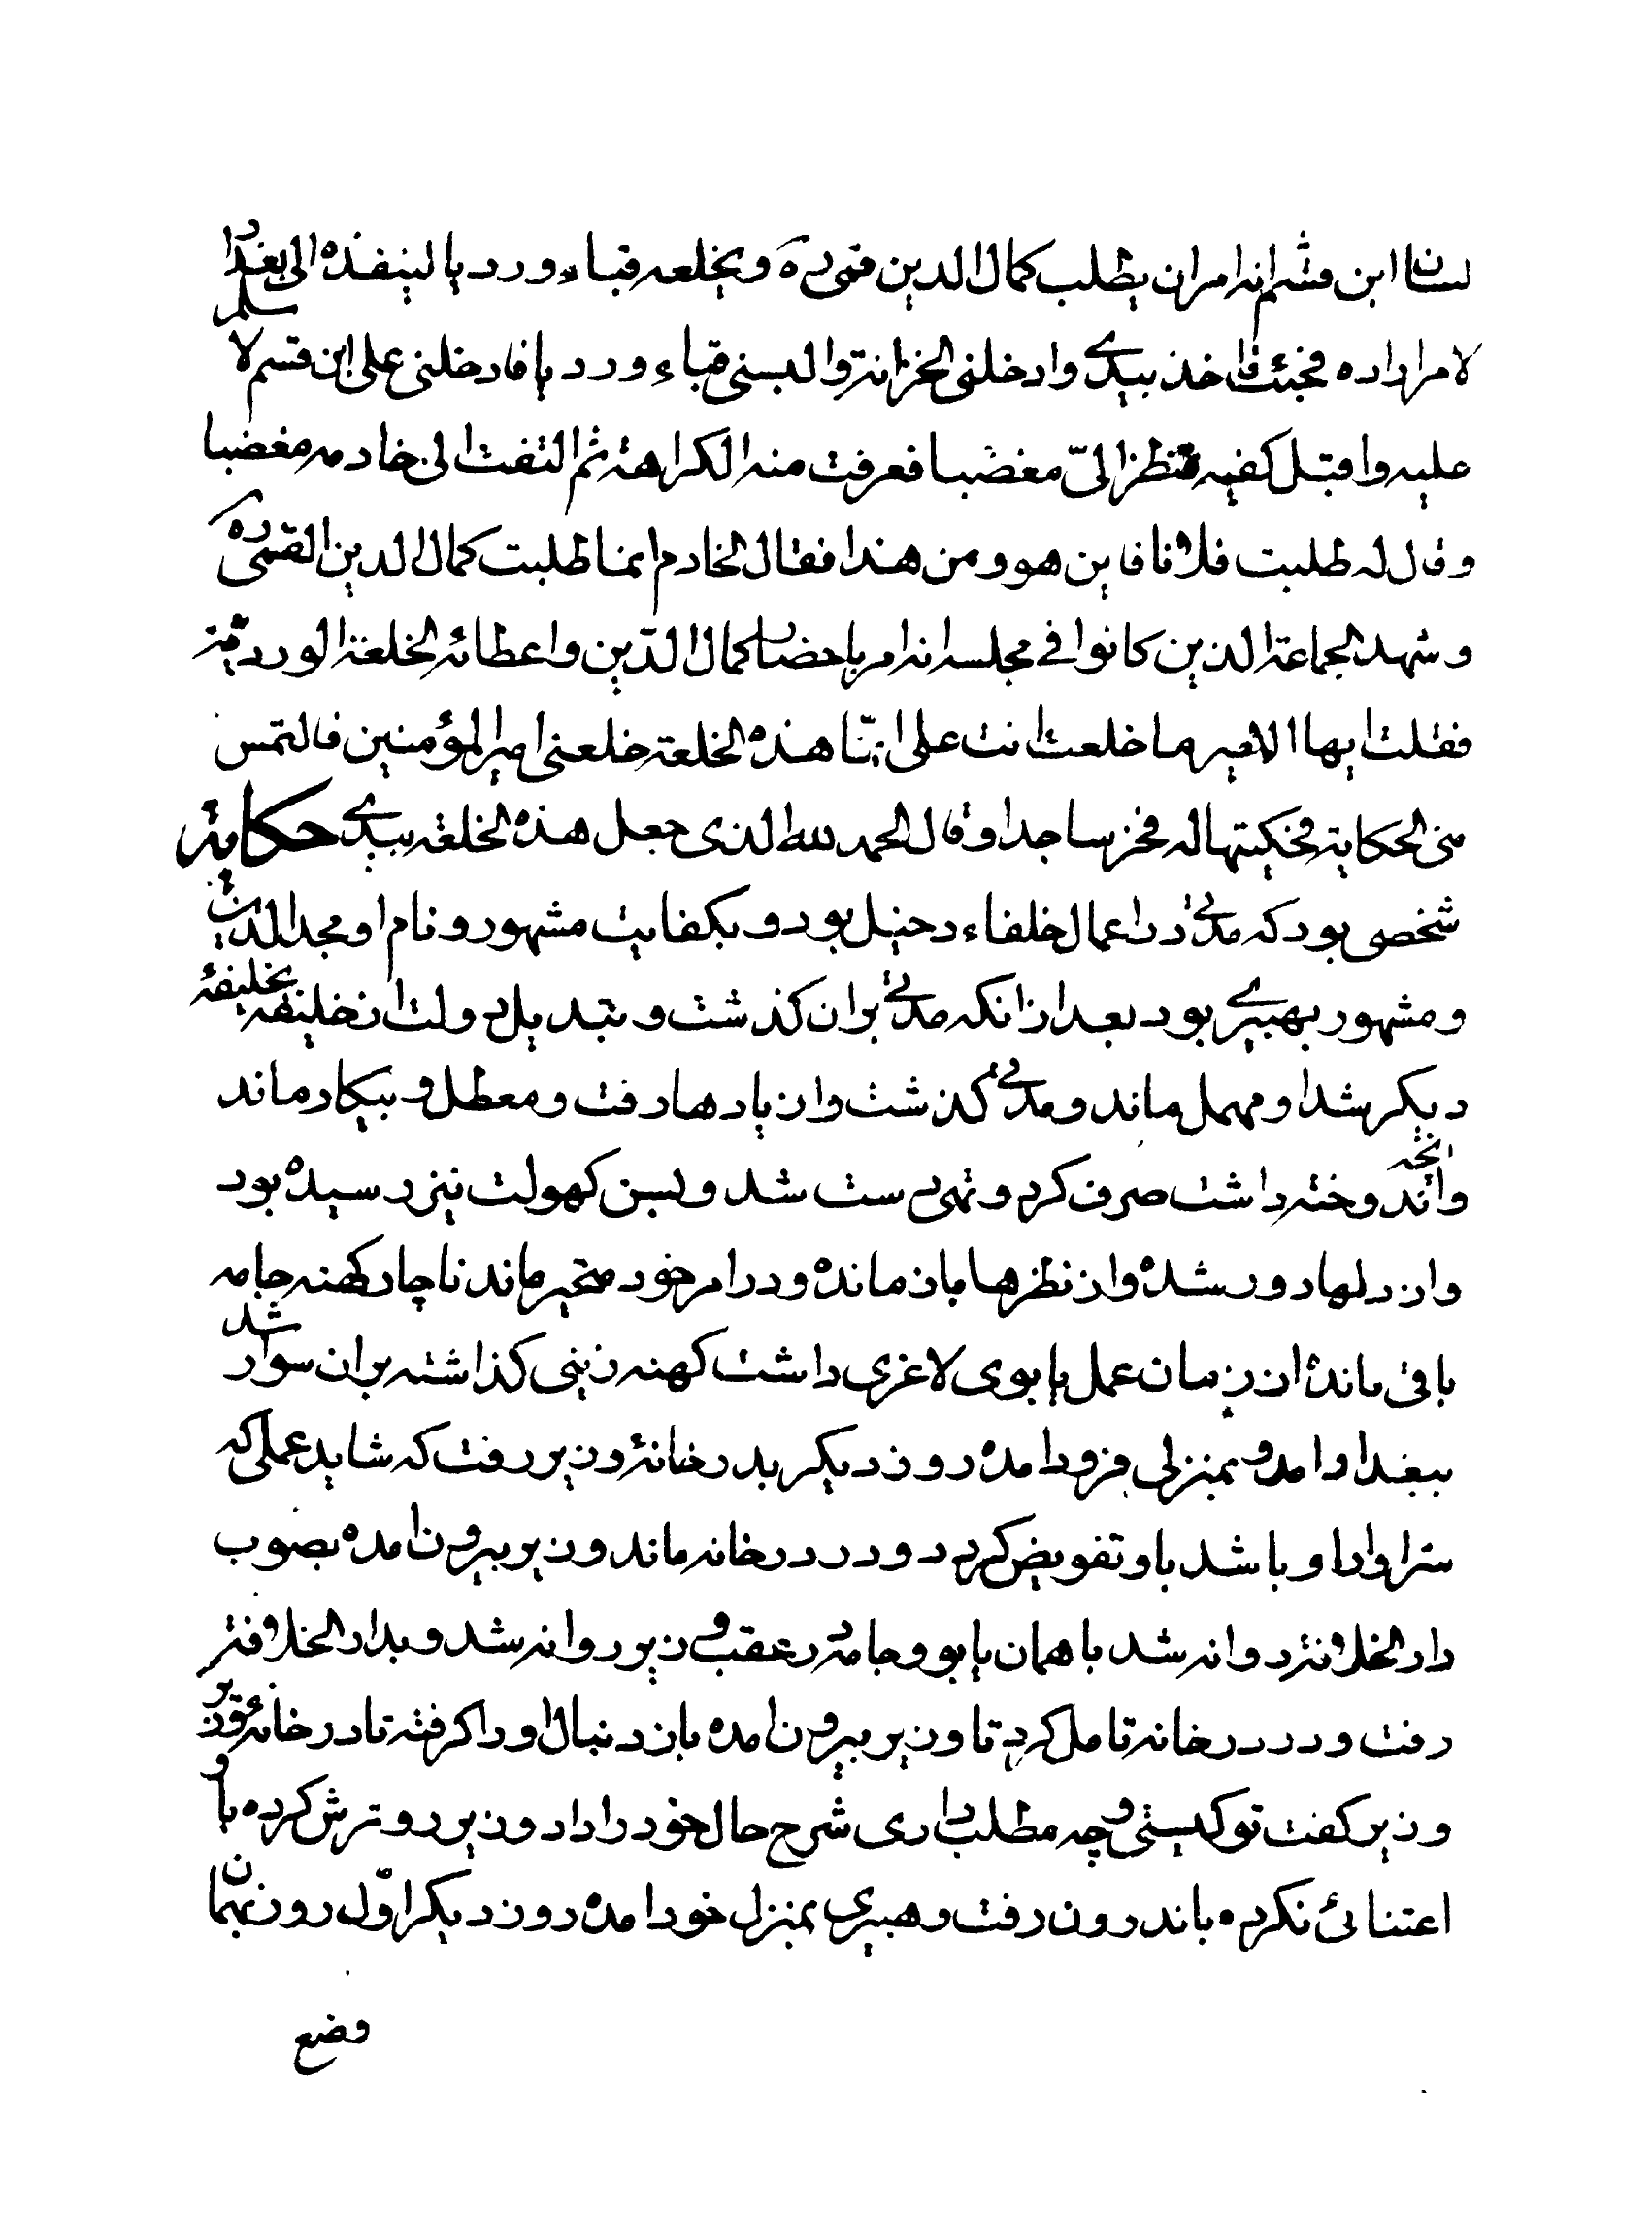 لسان ابن قشم انه امران يطلب كمال الدين قمى ره ويخلعه قباء ورديا لينفذه الى بغداد
لامراراده فجئت فاخذ بيدى وادخلنى الخزانة والبسنى قباء ورديا فادخلنى على ابن قسم لاسلم
عليه واقبل كفيه فنظر الىّ مغضبا فعرفت منه الكراهة ثم التفت الى خادمه مغضبا
وقال له طلبت فلانا فاين هو ومن هذا فقال الخادم انما طلبت كمال الدين القمى ره
وشهد الجماعة الذين كانوا فى مجلسه انه امر باحضار كمال الدّين واعطائه الخلعة الوردية
فقلت ايها الامير ما خلعت انت على انّما هذه الخلعة خلعنى امير المؤمنين فالتمس
منى الحكاية فحكيتها له فخر ساجدا وقال الحمد لله الذى جعل هذه الخلعة بيدى حكاية
شخصى بود كه مدتى در اعمال خلفاء دخيل بود و بكفايت مشهور و نام او مجدالدين
و مشهور بهبيرى بود بعد از انكه مدتى بران كذشت و تبديل دولت از خليفه بخليفهٔ
ديكر شد او مهمل ماند و مدتى كذشت و از يادها رفت و معطل و بيكار ماند
و انچه اندوخته داشت صرف كرد و تهى دست شد و بسن كهولت نيز رسيده بود
و از دلها دور شده و از نظرها باز مانده و در امر خود متحير ماند ناچار كهنه جامه
باقى ماندهٔ از زمان عمل يابوى لاغرى داشت كهنه زينى كذاشته بران سوار شد
ببغداد امد و بمنزلى فرود امده روز ديكر بدرخانهٔ وزير رفت كه شايد عملى كه
سزاوار او باشد باو تفويض كرد دو در درخانه ماند وزير بيرون امده بصوب
دار الخلافة روانه شد با همان يابو و جامه در عقب وزير روانه شد و بدار الخلافة
رفت و در درخانه تامل كرد تا وزير بيرون امده باز دنبال او را كرفته تا درخانهٔ وزير
وزير كفت تو كيستى و چه مطلب دارى شرح حال خود را داد وزير رو ترش كرده باو
اعتنائى نكرده باندرون رفت و هبيرى بمنزل خود امده روز ديكر اوّل روز بهمان
وضع